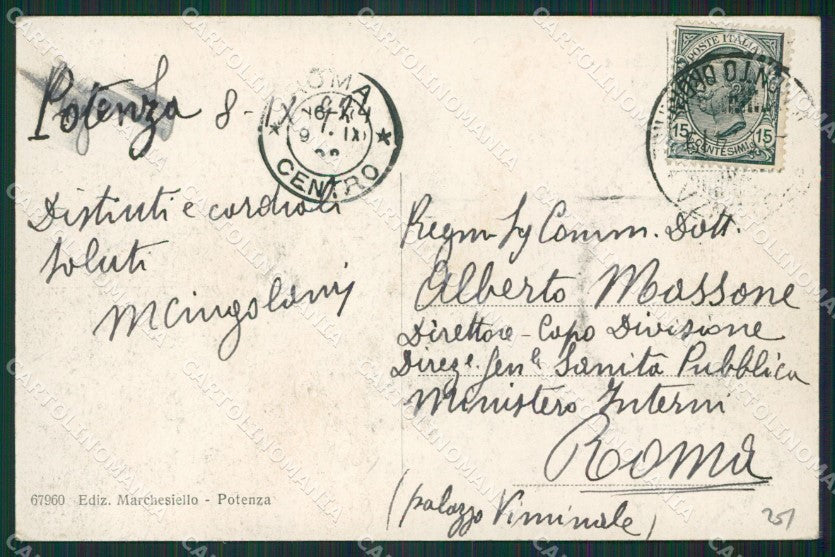 Potenza 8-IX
ROMA
CENTRO
POSTE ITALIANE
15 15
CENTESIMI
Distinti e cordiali
saluti
MCingolani
Pregmo Sg Comm. Dott.
Alberto Massone
Direttore-Capo Divisione
Direze. Genle Sanità Pubblica
Ministero Interni
ROMA
(palazzo Viminale)
67960 Ediz. Marchesiello - Potenza
251
CARTOLINOMANIA